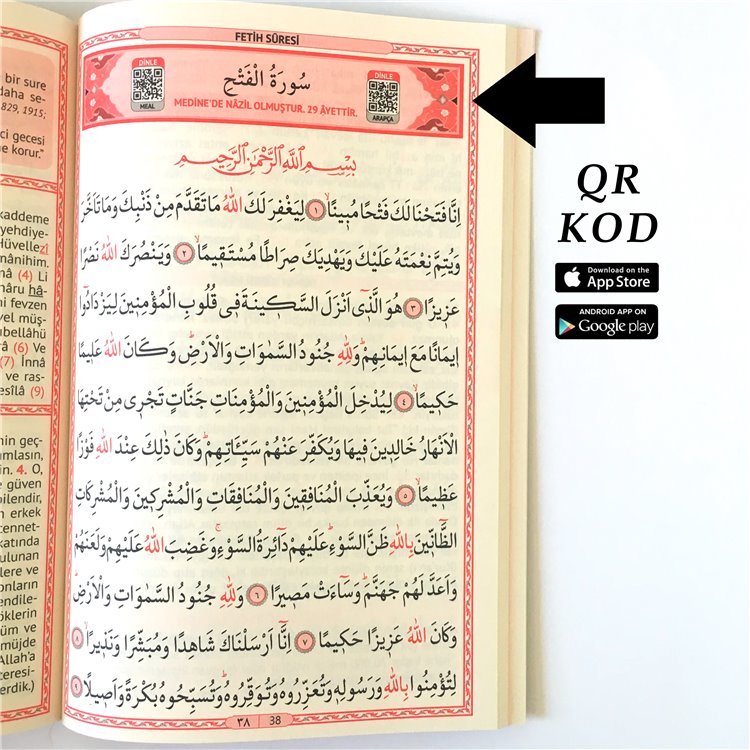 FETİH SÛRESİ
DİNLE
MEAL
سُورَةُ الْفَتْحِ
MEDİNE'DE NÂZİL OLMUŞTUR. 29 ÂYETTİR.
DİNLE
ARAPÇA
بِسْمِ اللّٰهِ الرَّحْمٰنِ الرَّحِيمِ
اِنَّا فَتَحْنَا لَكَ فَتْحًا مُبِينًاۙ ﴿١﴾ لِيَغْفِرَ لَكَ اللّٰهُ مَا تَقَدَّمَ مِنْ ذَنْبِكَ وَمَا تَاَخَّرَ
وَيُتِمَّ نِعْمَتَهُ عَلَيْكَ وَيَهْدِيَكَ صِرَاطًا مُسْتَقِيمًاۙ ﴿٢﴾ وَيَنْصُرَكَ اللّٰهُ نَصْرًا
عَزِيزًا ﴿٣﴾ هُوَ الَّذِٓي اَنْزَلَ السَّكِينَةَ فِي قُلُوبِ الْمُؤْمِنِينَ لِيَزْدَادُٓوا
اِيمَانًا مَعَ اِيمَانِهِمْۜ وَلِلّٰهِ جُنُودُ السَّمٰوَاتِ وَالْاَرْضِۜ وَكَانَ اللّٰهُ عَلِيمًا
حَكِيمًاۙ ﴿٤﴾ لِيُدْخِلَ الْمُؤْمِنِينَ وَالْمُؤْمِنَاتِ جَنَّاتٍ تَجْرِي مِنْ تَحْتِهَا
الْاَنْهَارُ خَالِدِينَ فِيهَا وَيُكَفِّرَ عَنْهُمْ سَيِّـَٔاتِهِمْۜ وَكَانَ ذٰلِكَ عِنْدَ اللّٰهِ فَوْزًا
عَظِيمًاۙ ﴿٥﴾ وَيُعَذِّبَ الْمُنَافِقِينَ وَالْمُنَافِقَاتِ وَالْمُشْرِكِينَ وَالْمُشْرِكَاتِ
الظَّٓانِّينَ بِاللّٰهِ ظَنَّ السَّوْءِۜ عَلَيْهِمْ دَٓائِرَةُ السَّوْءِۚ وَغَضِبَ اللّٰهُ عَلَيْهِمْ وَلَعَنَهُمْ
وَاَعَدَّ لَهُمْ جَهَنَّمَۜ وَسَٓاءَتْ مَصِيرًا ﴿٦﴾ وَلِلّٰهِ جُنُودُ السَّمٰوَاتِ وَالْاَرْضِۜ
وَكَانَ اللّٰهُ عَزِيزًا حَكِيمًا ﴿٧﴾ اِنَّٓا اَرْسَلْنَاكَ شَاهِدًا وَمُبَشِّرًا وَنَذِيرًاۙ ﴿٨﴾
لِتُؤْمِنُوا بِاللّٰهِ وَرَسُولِهِ وَتُعَزِّرُوهُ وَتُوَقِّرُوهُۜ وَتُسَبِّحُوهُ بُكْرَةً وَاَصِيلًا ﴿٩﴾
٣٨ 38
QR
KOD
Download on the
App Store
ANDROID APP ON
Google play
bir sure
daha se-
829, 1915;
ci gecesi
e korur."
kaddeme
yehdiye-
Hüvellezî
nânihim.
nâ (4) Li
hâru hâ-
hi fevzen
vel müş-
ubellâhü
râ (6) Ve
(7) İnnâ
ve ras-
esîlâ (9)
nin geç-
amlasın,
in. 4. O,
e güven
bilendir,
n erkek
cennet-
katında
ulunan
lere ve
onların
endile-
öklerin
üm ve
müjde
Allah'a
ceresi-
erdik.)